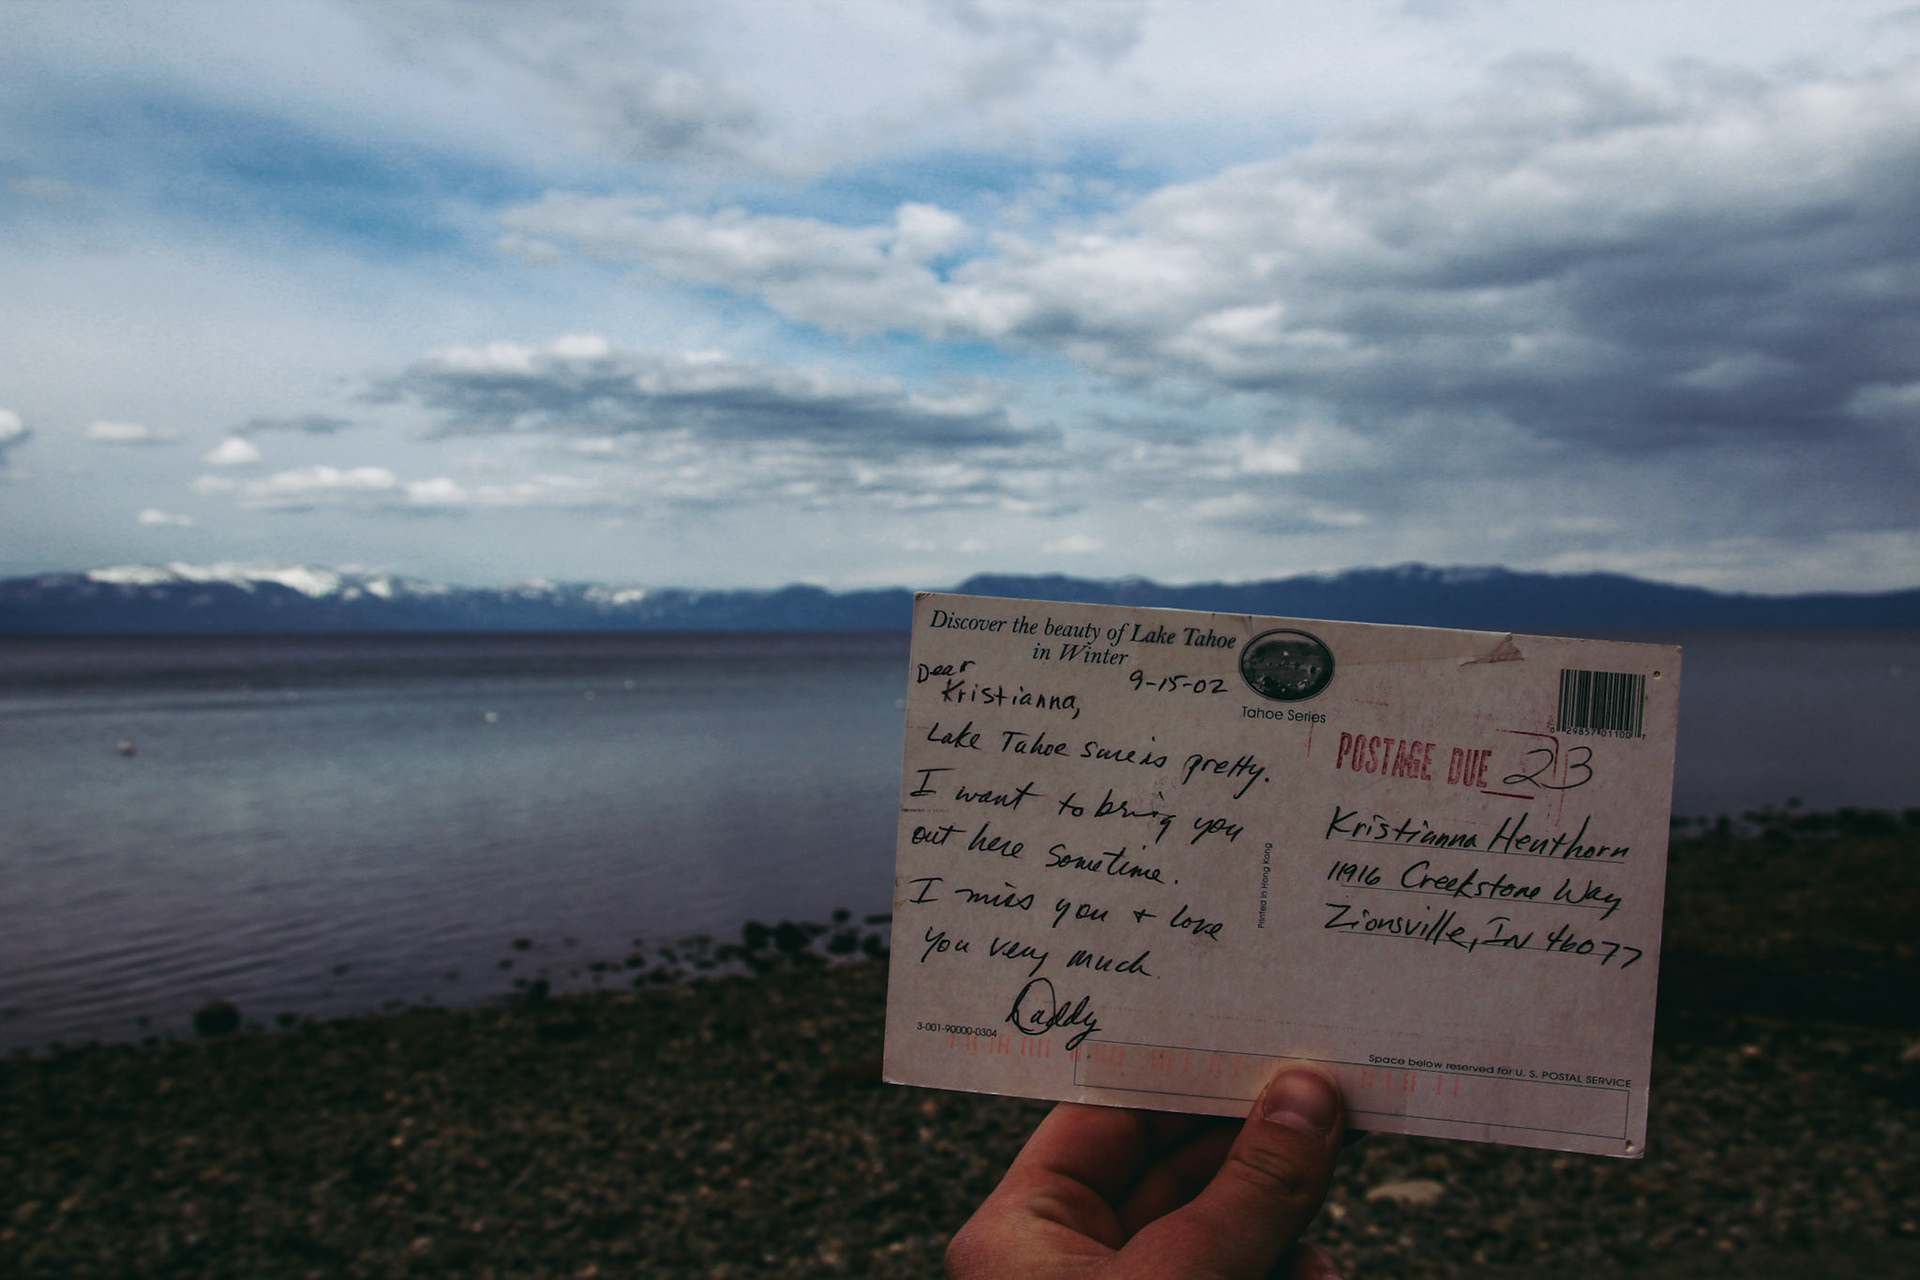 Discover the beauty of Lake Tahoe
in Winter
9-15-02
Dear
Kristianna,
Lake Tahoe sure is pretty.
I want to bring you
out here sometime.
I miss you + love
you very much.
Daddy
3-001-90000-0304
Tahoe Series
Printed in Hong Kong
0 29857 01100 7
POSTAGE DUE 23
Kristianna Henthorn
11916 Creekstone Way
Zionsville, IN 46077
Space below reserved for U. S. POSTAL SERVICE